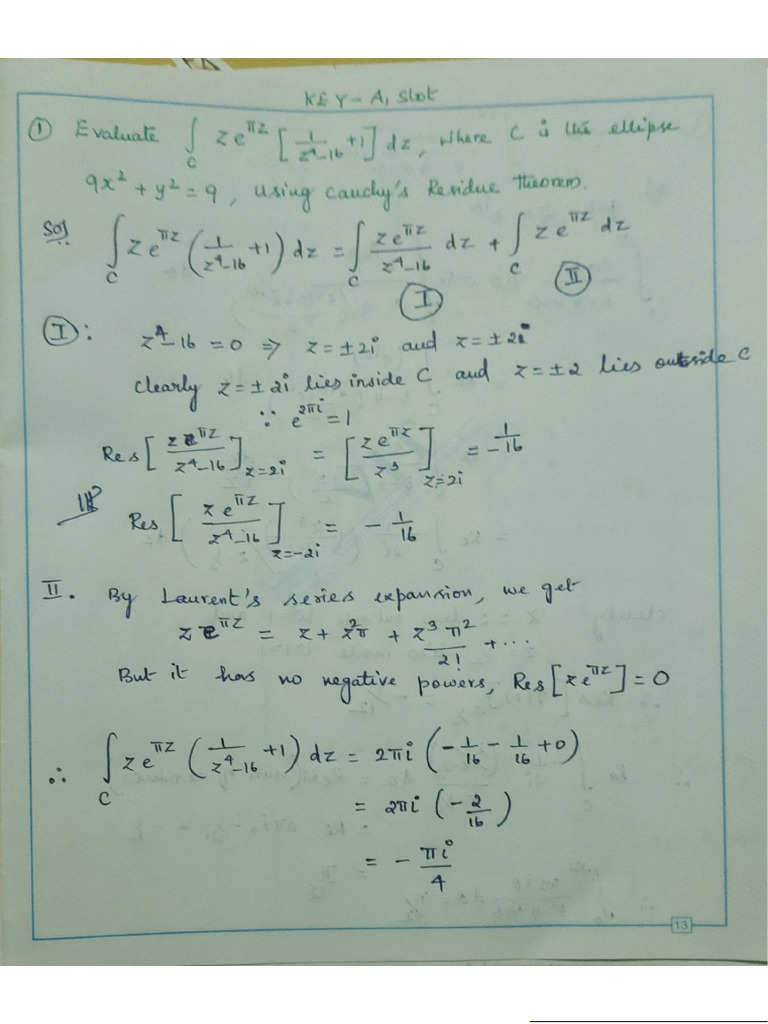 KEY - A₁ Slot
① Evaluate ∫_C z e^{πz} [1/(z⁴-16) + 1] dz, where C is the ellipse
9x² + y² = 9, using Cauchy's Residue theorem.
Sol ∫_C z e^{πz} (1/(z⁴-16) + 1) dz = ∫_C z e^{πz}/(z⁴-16) dz + ∫_C z e^{πz} dz
Ⓘ Ⓘⓘ
Ⓘ: z⁴-16 = 0 ⇒ z = ±2i and z = ±2i
clearly z = ±2i lies inside C and z = ±2 lies outside C
∵ e^{2πi} = 1
Res [z e^{πz}/(z⁴-16)]_{z=2i} = [z e^{πz}/z³]_{z=2i} = -1/16
Res [z e^{πz}/(z⁴-16)]_{z=-2i} = -1/16
II. By Laurent's series expansion, we get
z e^{πz} = z + z²π + z³π²/2! + ...
But it has no negative powers, Res[z e^{πz}] = 0
∴ ∫_C z e^{πz} (1/(z⁴-16) + 1) dz = 2πi (-1/16 - 1/16 + 0)
= 2πi (-2/16)
= -πi/4
13